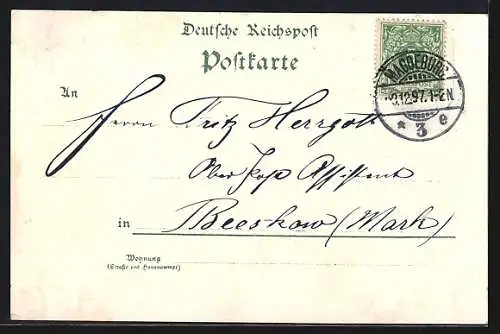 Deutsche Reichspost
Postkarte
An
Herrn Fritz Herrgott
Ober Post Assistent
in Beeskow (Mark)
Wohnung
(Straße und Hausnummer)
MAGDEBURG
12.97.1-2N.
* 3 e